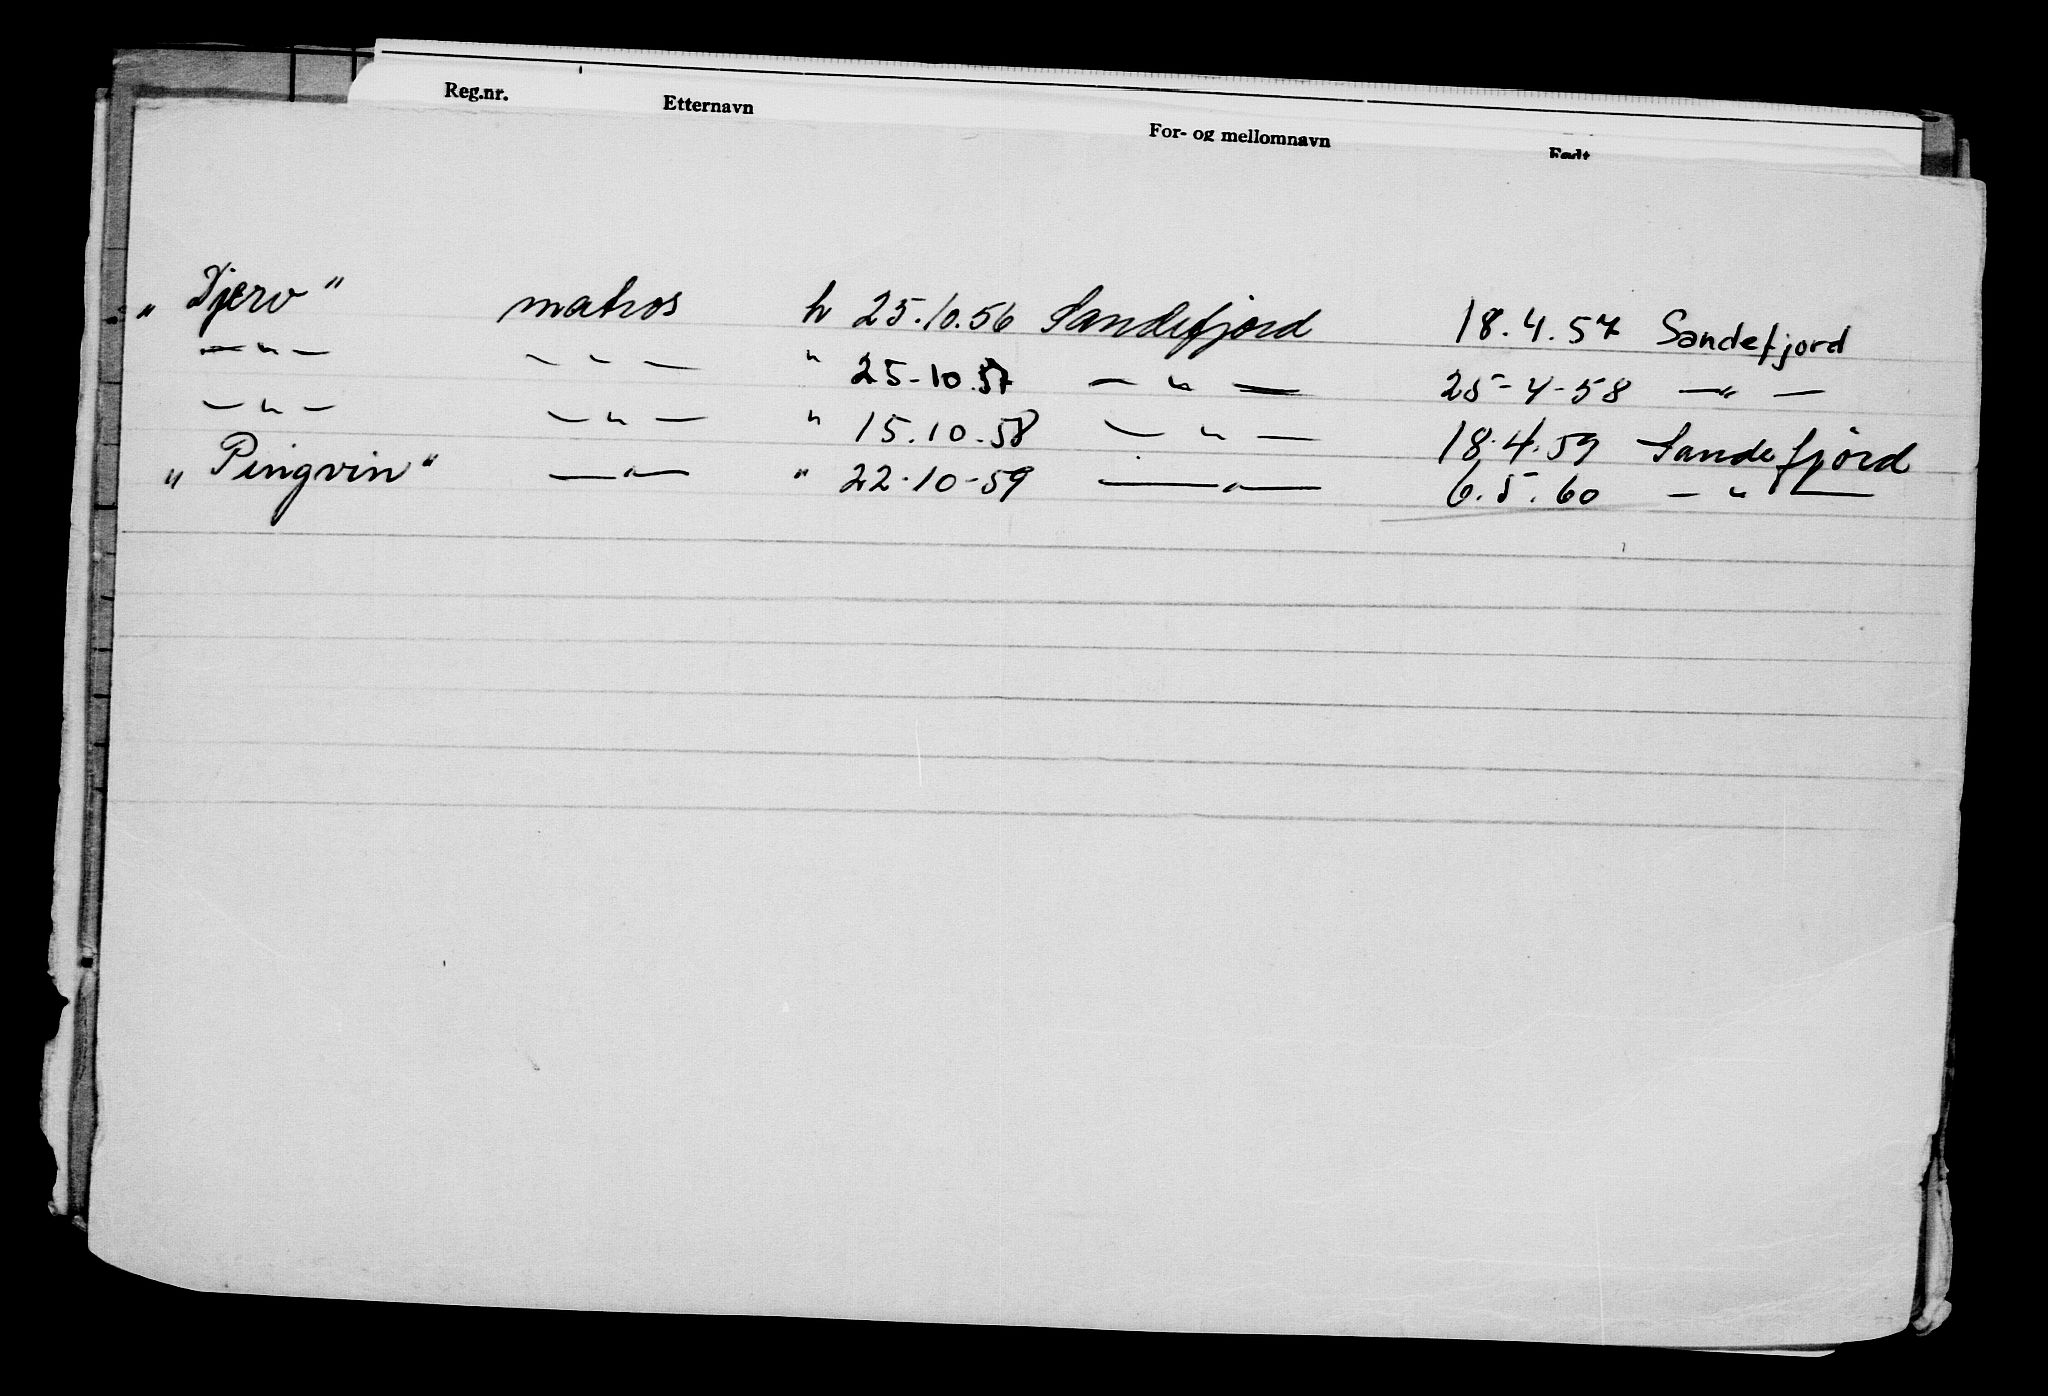 Reg.nr. Etternavn For- og mellomnavn Født
"Djerv" matros h 25.10.56 Sandefjord 18.4.57 Sandefjord
— " — — " — " 25-10.57 — " — 25-4-58 — " —
— " — — " — " 15.10.58 — " — 18.4.59 Sandefjord
"Pingvin" — " — " 22-10-59 — " — 6.5.60 — " —